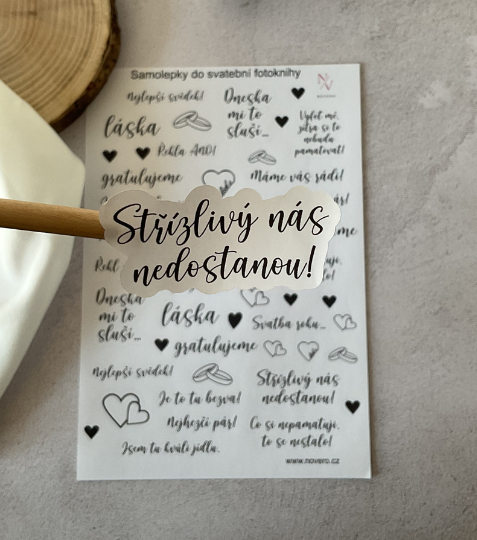 Samolepky do svatební fotoknihy
Nejlepší svědek!
Dneska
mi to
sluší...
Vyfoť mě,
zítra si to
nebudu
pamatovat!
láska
Řekla ANO!
gratulujeme
Máme vás rádi!
Střízlivý nás
nedostanou!
Dneska
mi to
sluší...
láska
Svatba roku...
gratulujeme
Nejlepší svědek!
Střízlivý nás
nedostanou!
Je to tu bezva!
Nejhezčí pár!
Co si nepamatuju,
to se nestalo!
Jsem tu kvůli jídlu.
www.novero.cz